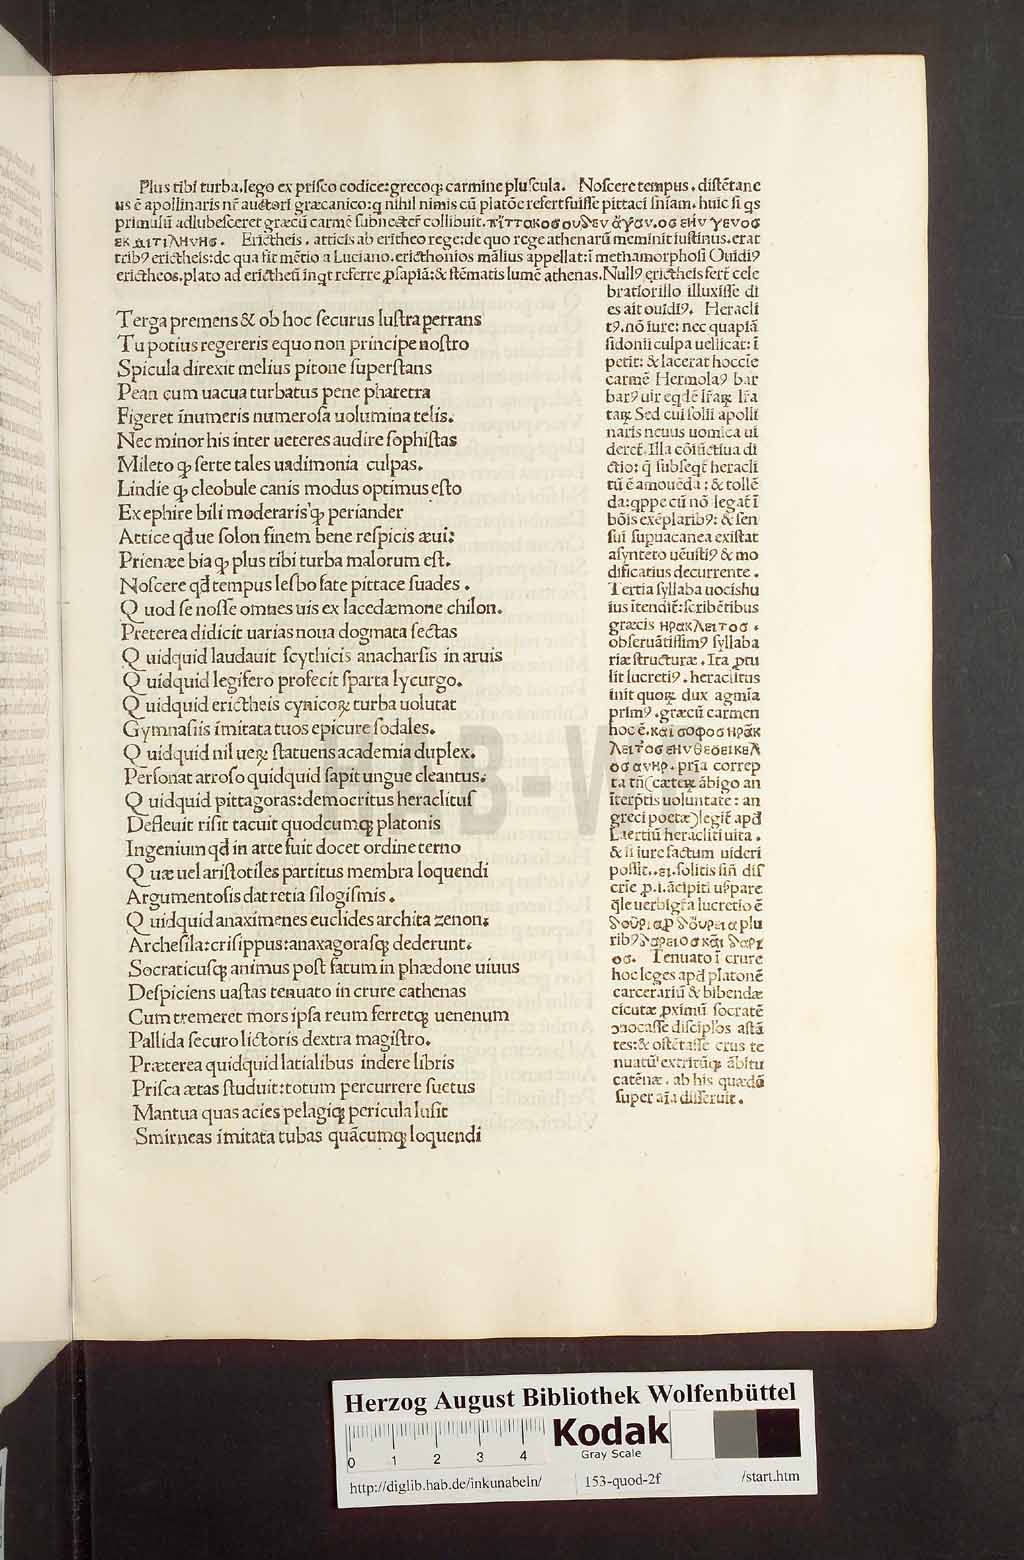 Plus tibi turba.lego ex prisco codice:grecoqꝫ carmine pluscula. Noscere tempus. distētane
us ē apollinaris nr̄ auctori græcanico:q nihil nimis cū platōe refert fuisse pittaci sniam. huic si qs
primulū adlubesceret græcū carmē subnectēr collibuit. πἳττακοσουδεν ἄγαν.οσ ενν γενοσ
εκ μιτιληνησ. Erictheis. atticis ab eritheo rege:de quo rege athenarū meminit iustinus. erat
tribꝰ erictheis:de qua fit mētio a Luciano. ericthonios mālius appellat:ī methamorphosi Ouidiꝰ
erictheos.plato ad erictheū īnqt referre ꝓsapiā:& stēmatis lumē athenas. Nullꝰ erictheis fert cele
bratiorillo illuxisse di
es ait ouidiꝰ. Heracli
tꝰ. nō iure: nec quapiā
sidonii culpa uellicat: ī
petit: & lacerat hoccīe
carmē Hermolaꝰ bar
barꝰ uir eqdē lr̄aꝝ lr̄a
taꝝ Sed cui solii apolli
naris neuus uomica ui
deret̄. Illa cōiūctiua di
ctio: q̄ subseqt̄ heracli
tū ē amouēda: & tollē
da:qppe cū nō legat̄ ī
bōis exēplaribꝰ: & sen
sui supuacanea existat
asynteto uēustiꝰ & mo
dificatius decurrente.
Tertia syllaba uocishu
ius ītendit̄: scribētibus
græcis ηρακλειτοσ.
obseruātissimꝰ syllaba
riæ structuræ. Ita ꝓtu
lit lucretiꝰ. heraclitus
init quoꝝ dux agmīa
primꝰ. græcū carmen
hoc ē. καἱ σοφοσ ηρἄκ
λειτοσ ενν θεοεικελ
οσ ανηρ. prīa correp
ta tn̄(cæteꝝ ābigo an
īterp̄tis uoluntate: an
greci poetæ)legit̄ apd
Laertiū heracliti uita.
& si iure factum uideri
possit..ει.solitis sin̄ dis
crīe ꝓ.i.ācipiti usꝑare
q̄le uerbigr̄a lucretio ē
δοῦρια ꝓ δὅυρεια plu
ribꝰ δαρειοσ κἄι δαρι
οσ. Tenuato ī crure
hoc leges apd platonē
carcerariū & bibendæ
cicutæ ꝓximū socratē
ꝯuocasse discipl̄os astā
tes:& ostētasse crus te
nuatū extritūqꝫ ābitu
catēnæ. ab his quædā
super aīa disseruit.
Terga premens & ob hoc securus lustra perrans
Tu potius regereris equo non principe nostro
Spicula direxit melius pitone superstans
Pean cum uacua turbatus pene pharetra
Figeret īnumeris numerosa uolumina telis.
Nec minor his inter ueteres audire sophistas
Mileto qꝫ ferte tales uadimonia culpas.
Lindie qꝫ cleobule canis modus optimus esto
Ex ephire bili moderaris qꝫ periander
Attice qd̄ue solon finem bene respicis æui:
Prienæe bia qꝫ plus tibi turba malorum est.
Noscere qd̄ tempus lesbo sate pittace suades.
Quod se nosse omnes uis ex lacedæmone chilon.
Preterea didicit uarias noua dogmata sectas
Quidquid laudauit scythicis anacharsis in aruis
Quidquid legifero profecit sparta lycurgo.
Quidquid erictheis cynicoꝝ turba uolutat
Gymnasiis imitata tuos epicure sodales.
Quidquid nil ueꝝ statuens academia duplex.
Personat arroso quidquid sapit ungue cleantus:
Quidquid pittagoras:democritus heraclitus
Defleuit risit tacuit quodcumqꝫ platonis
Ingenium qd̄ in arte fuit docet ordine terno
Quæ uel aristotiles partitus membra loquendi
Argumentosis dat retia silogismis.
Quidquid anaximenes euclides archita zenon:
Archesila:crisippus:anaxagorasqꝫ dederunt.
Socraticusqꝫ animus post fatum in phædone uiuus
Despiciens uastas tenuato in crure cathenas
Cum tremeret mors ipsa reum ferretqꝫ uenenum
Pallida securo lictoris dextra magistro.
Præterea quidquid latialibus indere libris
Prisca ætas studuit:totum percurrere suetus
Mantua quas acies pelagiqꝫ pericula lusit
Smirneas imitata tubas quācumqꝫ loquendi
HAB-W
Herzog August Bibliothek Wolfenbüttel
0 1 2 3 4
Kodak
Gray Scale
http://diglib.hab.de/inkunabeln/ 153-quod-2f /start.htm